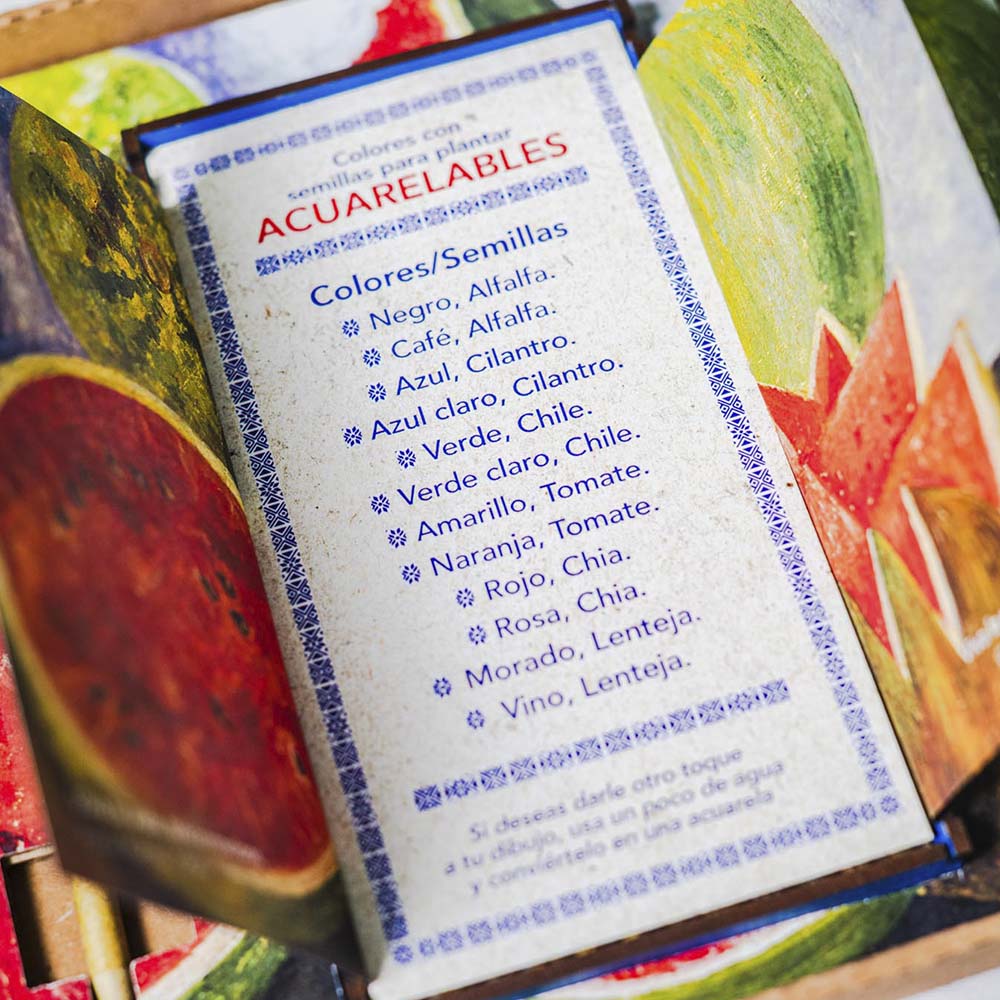 Colores con
semillas para plantar
ACUARELABLES
Colores/Semillas
Negro, Alfalfa.
Café, Alfalfa.
Azul, Cilantro.
Azul claro, Cilantro.
Verde, Chile.
Verde claro, Chile.
Amarillo, Tomate.
Naranja, Tomate.
Rojo, Chia.
Rosa, Chia.
Morado, Lenteja.
Vino, Lenteja.
Si deseas darle otro toque
a tu dibujo, usa un poco de agua
y conviértelo en una acuarela